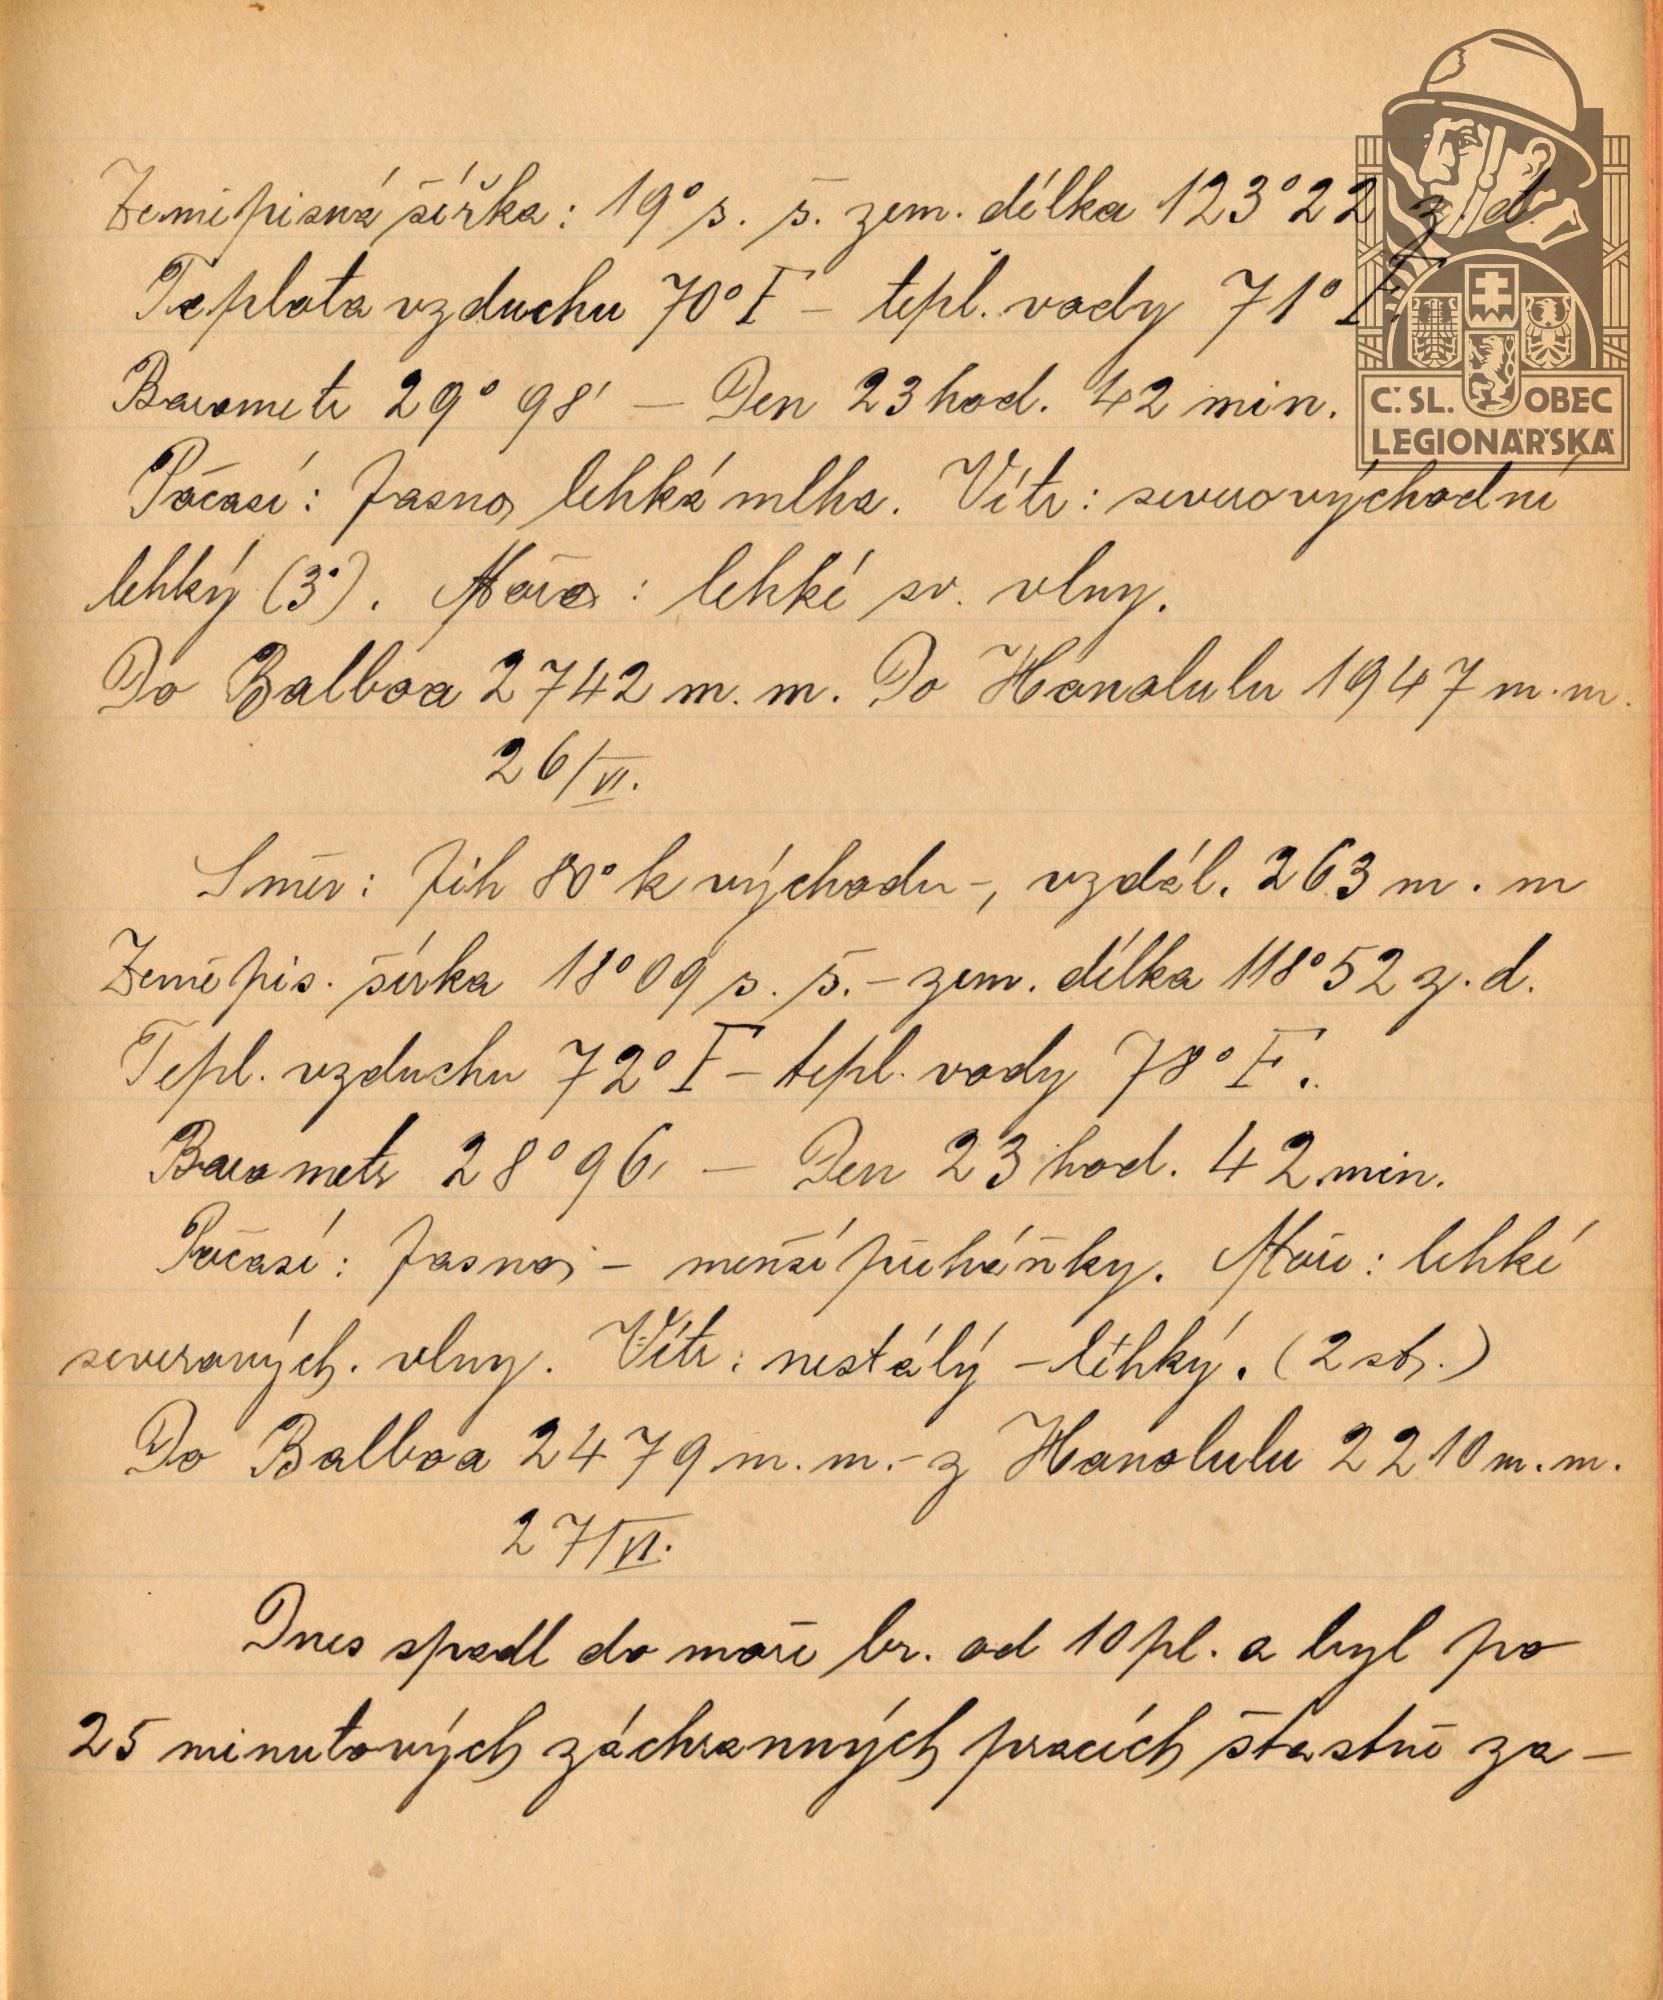 Zeměpisná šířka: 19° s. š. zem. délka 123°22 z. d.
Teplota vzduchu 70° F – tepl. vody 71° F.
Barometr 29° 98' — Den 23 hod. 42 min.
Počasí: Jasno, lehká mlha. Vítr: severovýchodní
lehký (3°). Moře: lehké sv. vlny.
Do Balboa 2742 m. m. Do Honolulu 1947 m. m.
26/VI.
Směr: Jih 80° k východu –, vzdál. 263 m. m
Zeměpis. šírka 18°09 s. š. – zem. délka 118°52 z. d.
Tepl. vzduchu 72° F – tepl. vody 78° F.
Barometr 28° 96, — Den 23 hod. 42 min.
Počasí: Jasno, – menší přeháňky. Moře: lehké
severových. vlny. Vítr: nestálý – léhký. (2 st.)
Do Balboa 2479 m. m. – z Hanolulu 2210 m. m.
27/VI.
Dnes spadl do moře br. od 10 pl. a byl po
25 minutových záchranných pracích štastně za –
Č. SL. OBEC
LEGIONÁŘSKÁ